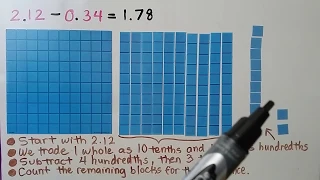 2.12 - 0.34 = 1.78
Start with 2.12
We trade 1 whole as 10 tenths and hundredths
Subtract 4 hundredths, then 3
Count the remaining blocks for the